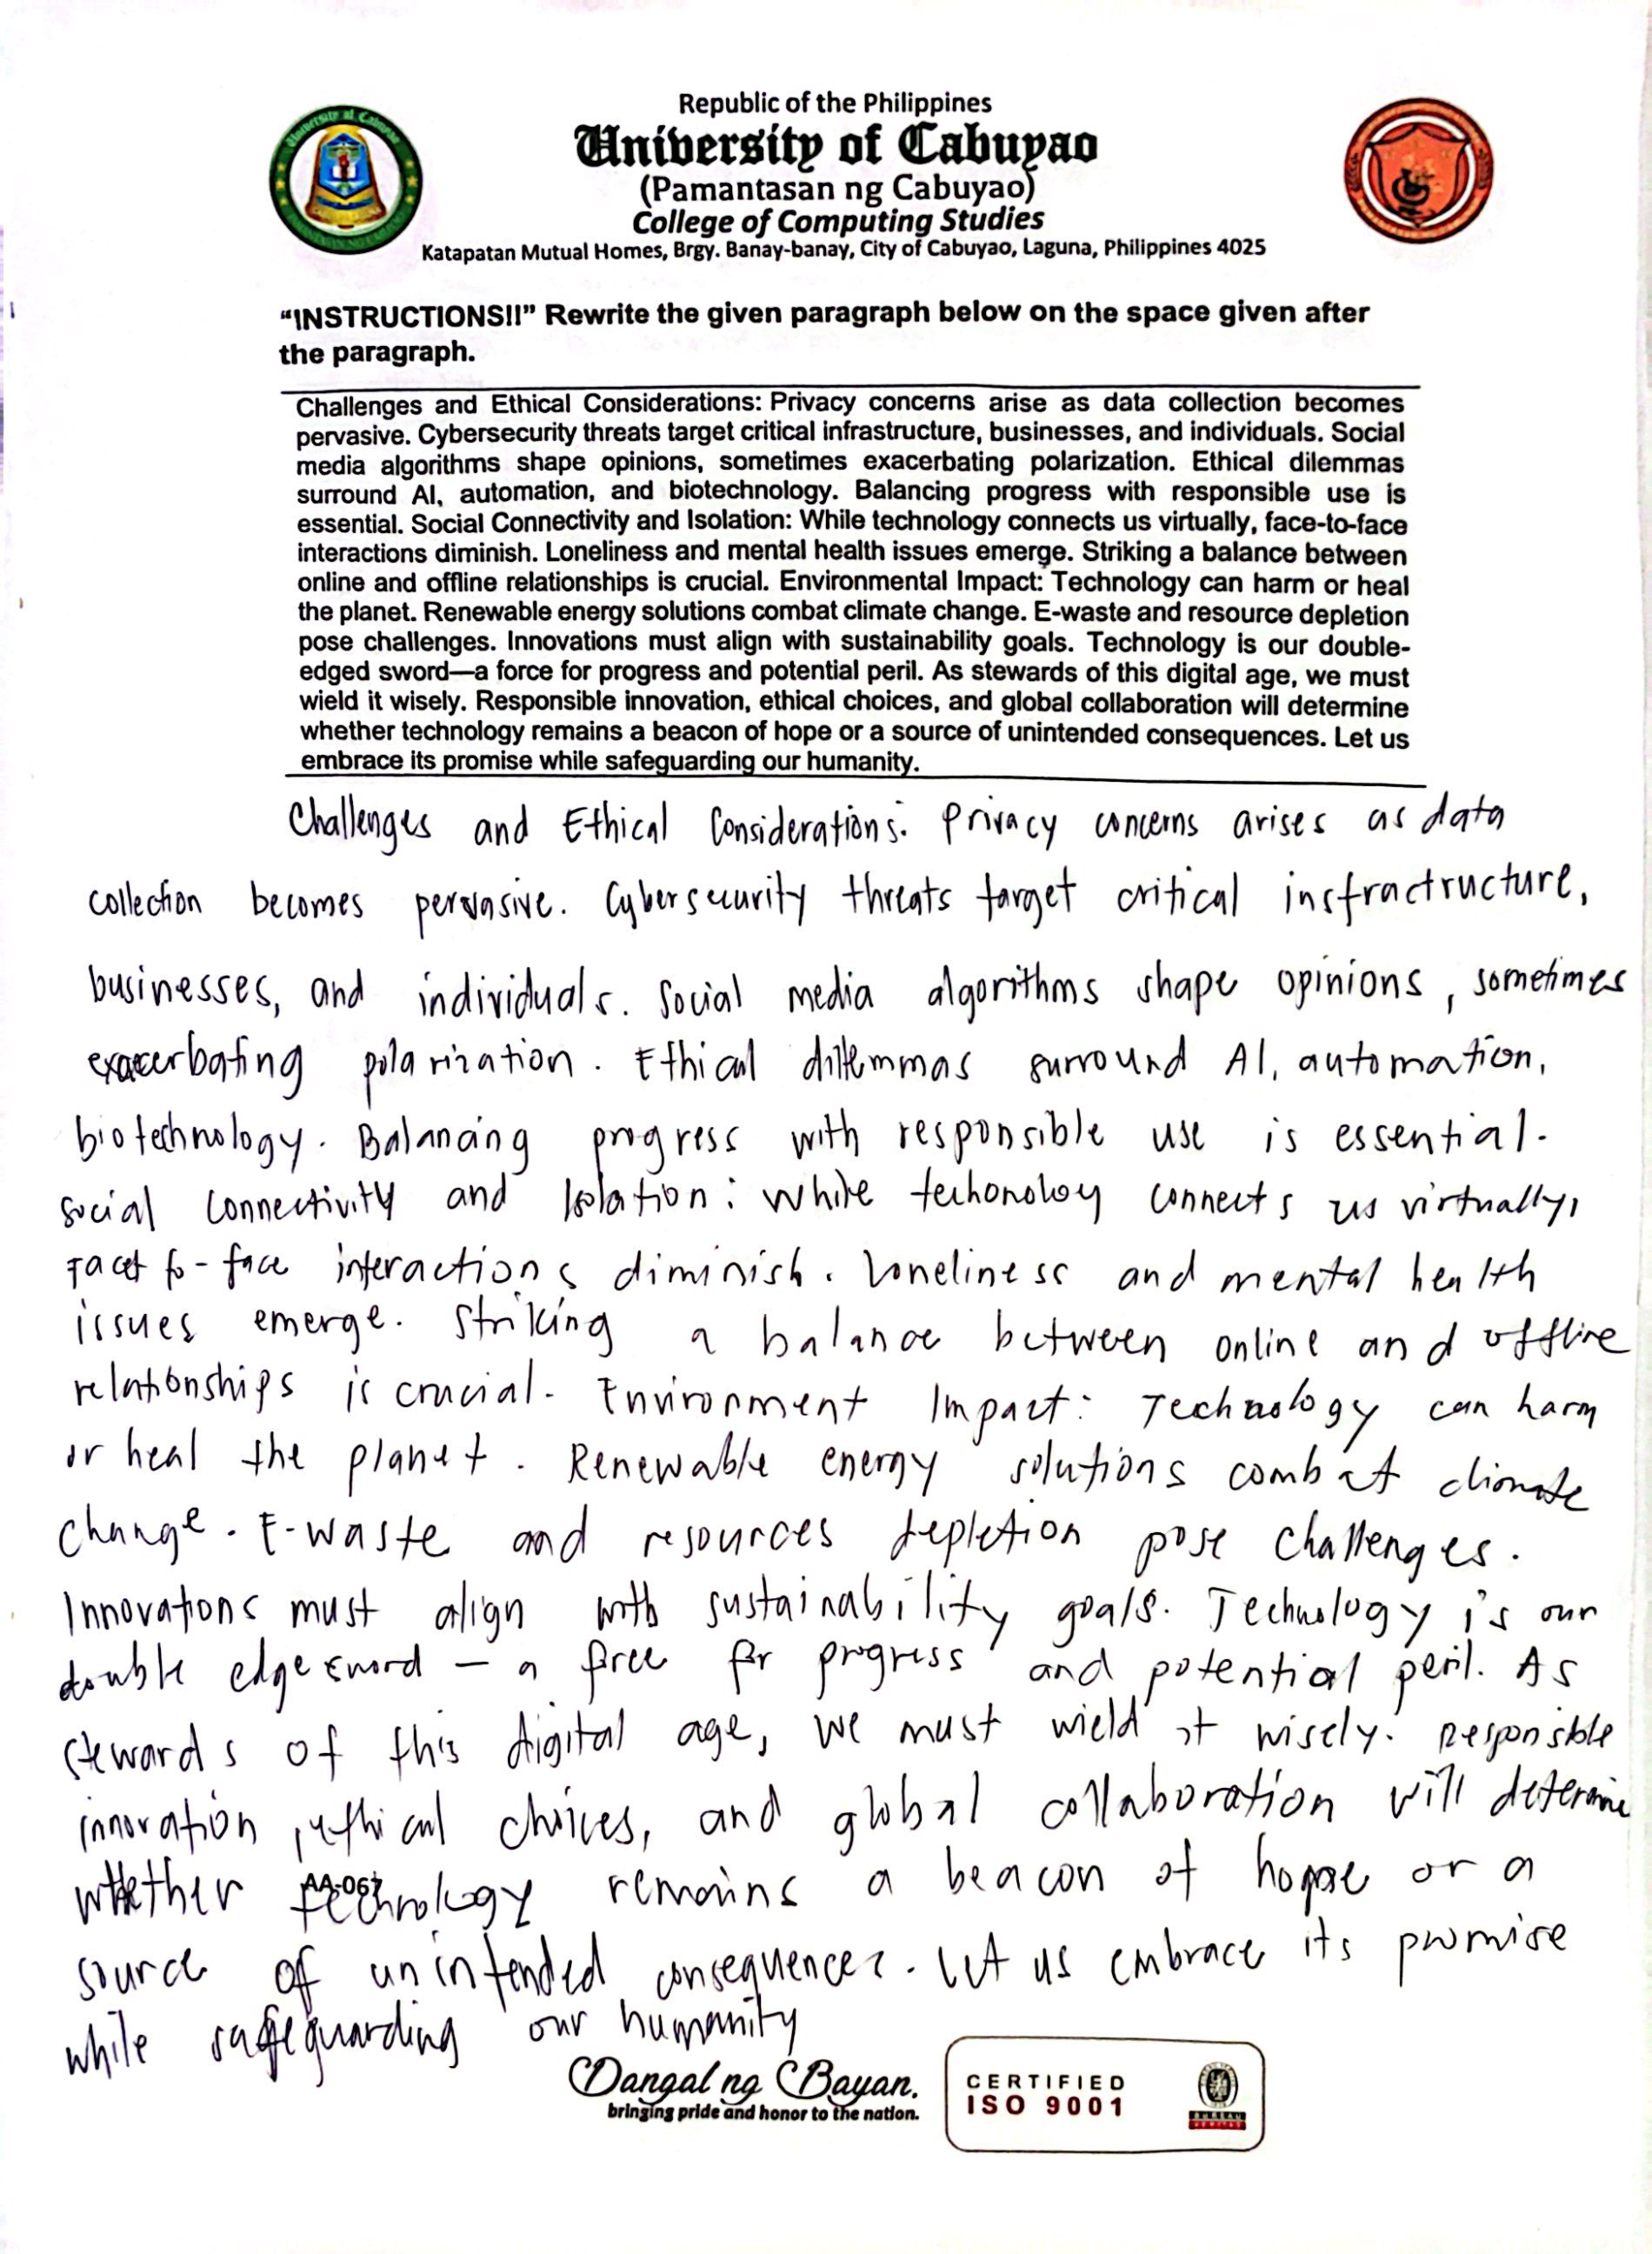 Republic of the Philippines
University of Cabuyao
(Pamantasan ng Cabuyao)
College of Computing Studies
Katapatan Mutual Homes, Brgy. Banay-banay, City of Cabuyao, Laguna, Philippines 4025
“INSTRUCTIONS!!” Rewrite the given paragraph below on the space given after
the paragraph.
Challenges and Ethical Considerations: Privacy concerns arise as data collection becomes
pervasive. Cybersecurity threats target critical infrastructure, businesses, and individuals. Social
media algorithms shape opinions, sometimes exacerbating polarization. Ethical dilemmas
surround AI, automation, and biotechnology. Balancing progress with responsible use is
essential. Social Connectivity and Isolation: While technology connects us virtually, face-to-face
interactions diminish. Loneliness and mental health issues emerge. Striking a balance between
online and offline relationships is crucial. Environmental Impact: Technology can harm or heal
the planet. Renewable energy solutions combat climate change. E-waste and resource depletion
pose challenges. Innovations must align with sustainability goals. Technology is our double-
edged sword—a force for progress and potential peril. As stewards of this digital age, we must
wield it wisely. Responsible innovation, ethical choices, and global collaboration will determine
whether technology remains a beacon of hope or a source of unintended consequences. Let us
embrace its promise while safeguarding our humanity.
Challenges and Ethical Considerations: Privacy concerns arises as data
collection becomes pervasive. Cybersecurity threats target critical insfractructure,
businesses, and individuals. Social media algorithms shape opinions, sometimes
exacerbating polarization. Ethical dilemmas surround AI, automation,
biotechnology. Balancing progress with responsible use is essential.
Social Connectivity and Isolation: While techonoloy connects us virtually,
to-face interactions diminish. Loneliness and mental health
issues emerge. Striking a balance between online and offline
relationships is crucial. Environment Impact: Technology can harm
or heal the planet. Renewable energy solutions combat climate
change. E-waste and resources depletion pose challenges.
Innovations must align with sustainability goals. Technology is our
double edge sword — a force for progress and potential peril. As
stewards of this digital age, we must wield it wisely. Responsible
innovation, ethical choices, and global collaboration will determine
whether technology remains a beacon of hope or a
AA-067
source of unintended consequences. Let us embrace its promise
while safeguarding our humanity
Dangal ng Bayan.
bringing pride and honor to the nation.
CERTIFIED
ISO 9001
BUREAU
VERITAS